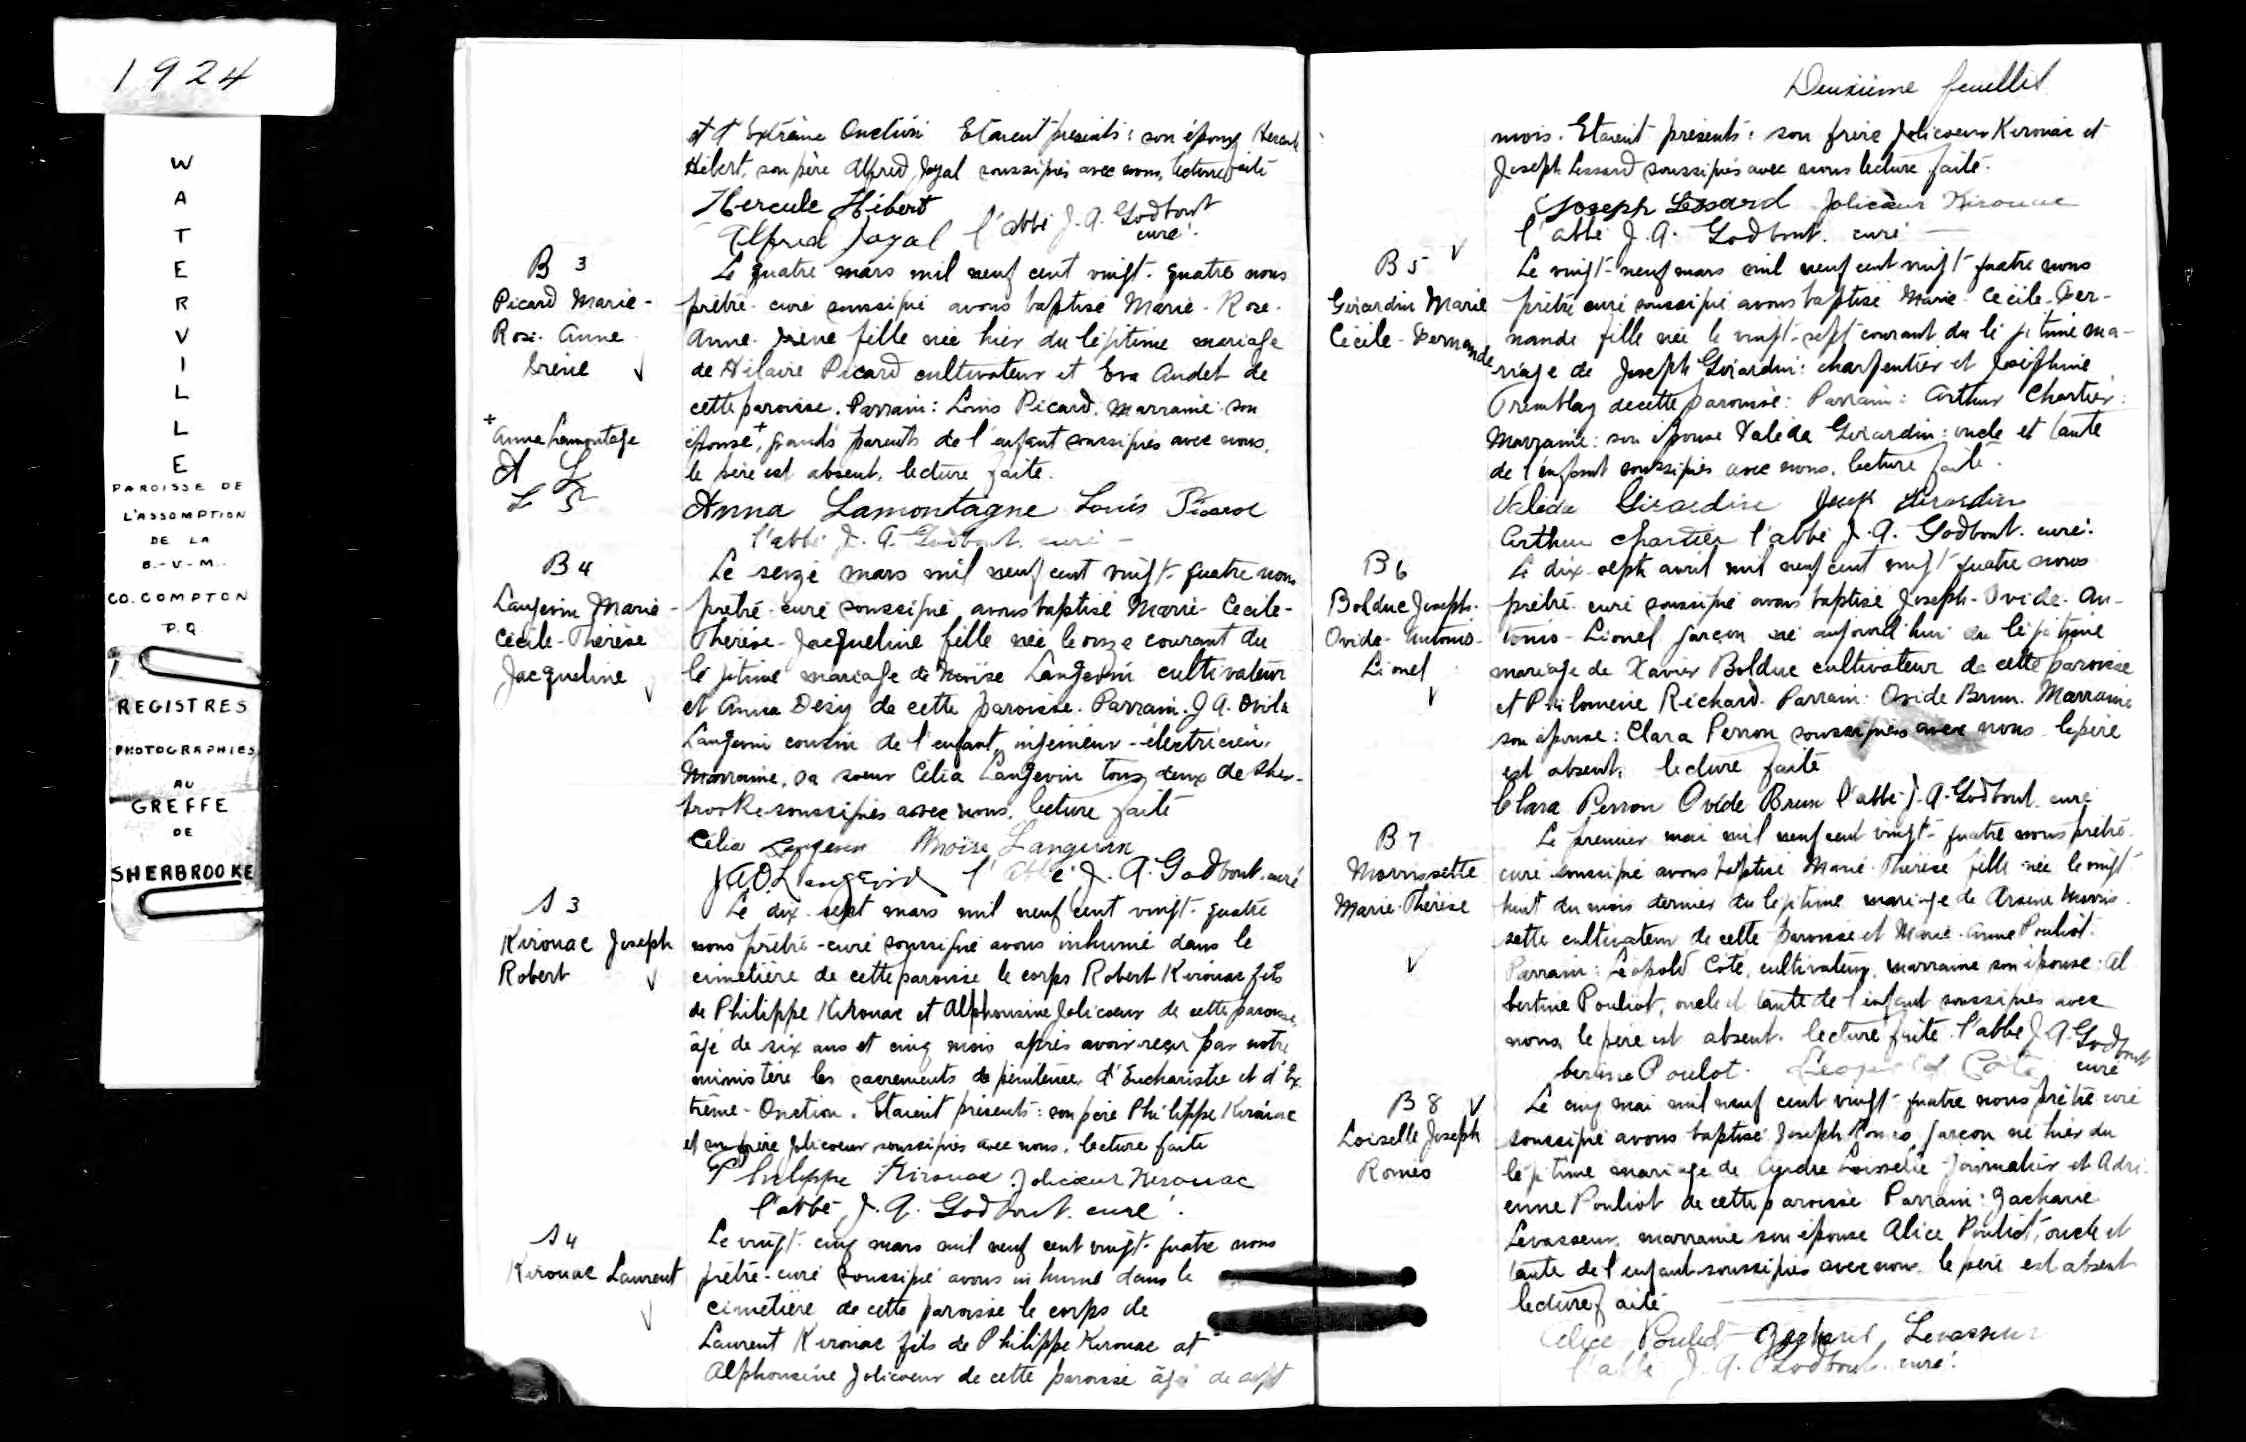 1924
W
A
T
E
R
V
I
L
L
E
PAROISSE DE
L'ASSOMPTION
DE LA
B.-V.-M.
CO. COMPTON
P.Q.
REGISTRES
PHOTOGRAPHIES
AU
GREFFE
DE
SHERBROOKE
et d'Extrême Onction Etaient présents : son époux Hercule
Hébert, son père Alfred Joyal soussignés avec nous, lecture faite
Hercule Hébert
Alfred Joyal l'abbé J. A. Godbout
curé.
B 3
Picard Marie-
Rose-Anne-
Irène
Le quatre mars mil neuf cent vingt-quatre nous
prêtre-curé soussigné avons baptisé Marie-Rose-
Anne-Irène fille née hier du légitime mariage
de Hilaire Picard cultivateur et Eva Audet de
cette paroisse. Parrain : Louis Picard, marraine son
+
Anna Lamontagne
A L
L
épouse+, grands parents de l'enfant soussignés avec nous,
le père est absent, lecture faite.
Anna Lamontagne Louis Picard
l'abbé J. A. Godbout curé
B 4
Langevin Marie-
Cécile-Thérèse
Jacqueline
Le seize mars mil neuf cent vingt-quatre nous
prêtre-curé soussigné avons baptisé Marie-Cécile-
Thérèse-Jacqueline fille née le onze courant du
légitime mariage de Moïse Langevin cultivateur
et Anna Désy de cette paroisse. Parrain. J A. Ovila
Langevin cousin de l'enfant, ingénieur-électricien,
Marraine, sa soeur Célia Langevin tous deux de Sher-
brooke soussignés avec nous. lecture faite
Célia Langevin Moïse Languvin
J A O Langevin l'abbé J. A. Godbout. curé
S 3
Kirouac Joseph
Robert
Le dix-sept mars mil neuf cent vingt-quatre
nous prêtre-curé soussigné avons inhumé dans le
cimetière de cette paroisse le corps Robert Kirouac fils
de Philippe Kirouac et Alphonsine Jolicoeur de cette paroisse,
âgé de six ans et cinq mois après avoir reçu par notre
ministère les sacrements de pénitence, d'Eucharistie et d'Ex
trême-Onction. Etaient présents : son père Philippe Kirouac
et son frère Jolicoeur soussignés avec nous. lecture faite
Philippe Kirouac Jolicoeur Kirouac
l'abbé J. A. Godbout. curé.
S 4
Kirouac Laurent
Le vingt-cinq mars mil neuf cent vingt-quatre nous
prêtre-curé soussigné avons inhumé dans le
cimetière de cette paroisse le corps de
Laurent Kirouac fils de Philippe Kirouac et
Alphonsine Jolicoeur de cette paroisse âgé de sept
Deuxième feuillet
mois. Etaient présents : son frère Jolicoeur Kirouac et
Joseph Lessard soussignés avec nous lecture faite.
Joseph Lessard Jolicoeur Kirouac
l'abbé J. A. Godbout. curé
B 5
Girardin Marie
Cécile-Fernande
Le vingt-neuf mars mil neuf cent vingt-quatre nous
prêtre curé soussigné avons baptisé Marie-Cécile-Fer-
nande fille née le vingt-sept courant du légitime ma-
riage de Joseph Girardin : charpentier et Joséphine
Tremblay de cette paroisse : Parrain : Arthur Chartier :
Marraine : son épouse Valéda Girardin : oncle et tante
de l'enfant soussignés avec nous. lecture faite.
Valéda Girardin Joseph Girardin
Arthur Chartier l'abbé J. A. Godbout. curé.
B 6
Bolduc Joseph-
Ovide-Antonio-
Lionel
Le dix-sept avril mil neuf cent vingt-quatre nous
prêtre-curé soussigné avons baptisé Joseph-Ovide-An-
tonio-Lionel garçon né aujourd'hui du légitime
mariage de Xavier Bolduc cultivateur de cette paroisse
et Philomène Richard. Parrain : Ovide Brun. Marraine
son épouse : Clara Perron soussignés avec nous le père
est absent. lecture faite
Clara Perron Ovide Brun l'abbé J. A. Godbout. curé
B 7
Morrissette
Marie-Thérèse
Le premier mai mil neuf cent vingt-quatre nous prêtre-
curé soussigné avons baptisé Marie-Thérèse fille née le vingt-
huit du mois dernier du légitime mariage de Arsène Morris-
sette cultivateur de cette paroisse et Marie-Anne Pouliot.
Parrain : Léopold Côté, cultivateur, marraine son épouse : Al
bertine Pouliot, oncle et tante de l'enfant soussignés avec
nous, le père est absent. lecture faite. l'abbé J. A. Godbout
curé
Pouliot. Léopold Côté
B 8
Loiselle Joseph
Roméo
Le cinq mai mil neuf cent vingt-quatre nous prêtre curé
soussigné avons baptisé Joseph Roméo garçon né hier du
légitime mariage de Loiselle journalier et Adri-
enne Pouliot de cette paroisse Parrain : Zacharie
Levasseur, marraine son épouse Alice Pouliot, oncle et
tante de l'enfant soussignés avec nous. le père est absent
lecture faite
Alice Pouliot Levasseur
l'abbé J. A. Godbout. curé.